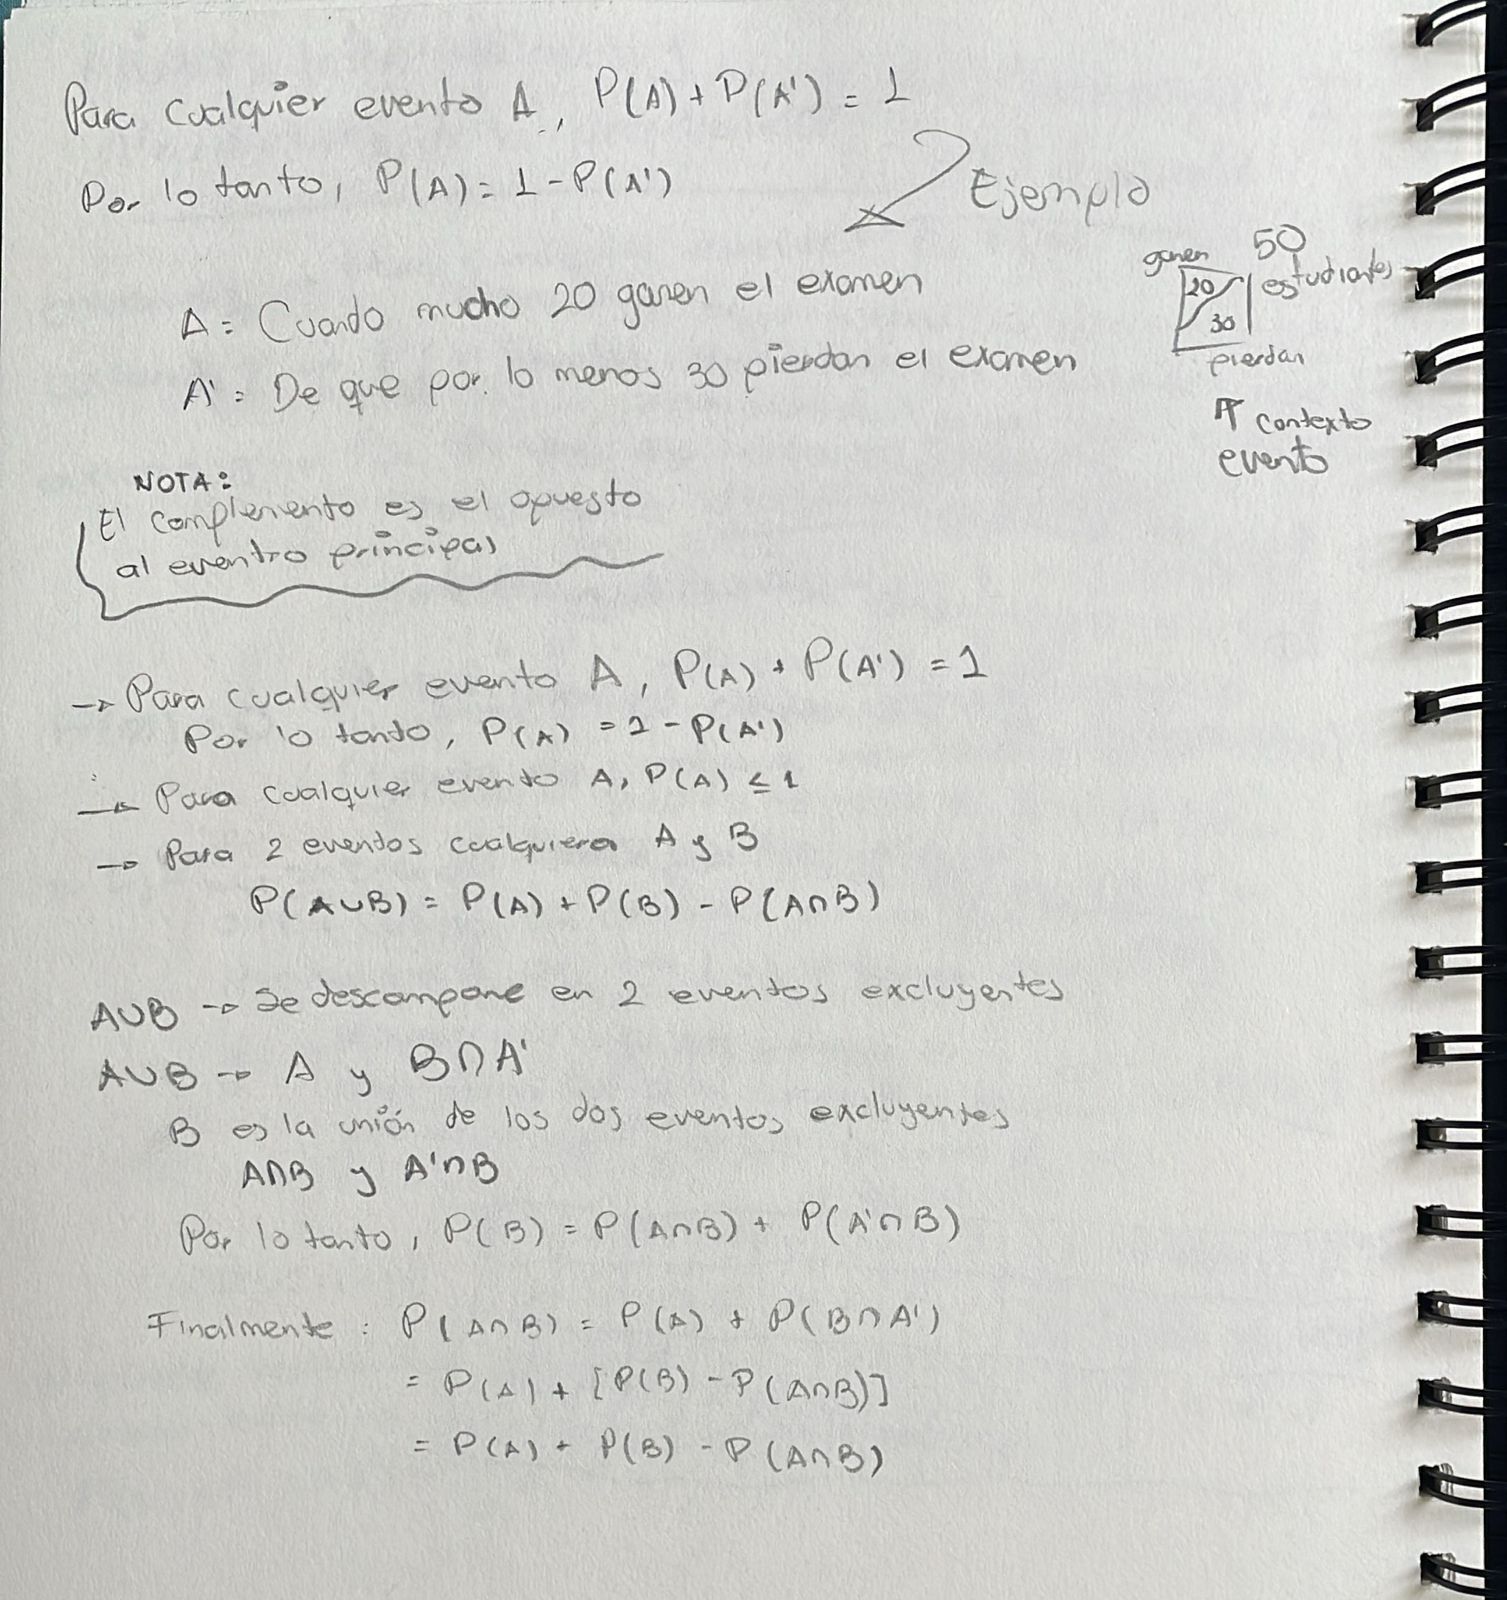 Para cualquier evento A, P(A) + P(A') = 1
Por lo tanto, P(A) = 1 - P(A')
Ejemplo
A = Cuando mucho 20 ganen el examen
A' = De que por lo menos 30 pierdan el examen
ganen 50
20 estudiantes
30
pierdan
↑ contexto
evento
NOTA:
El complemento es el opuesto
al eventro principal
→ Para cualquier evento A, P(A) + P(A') = 1
Por lo tanto, P(A) = 1 - P(A')
→ Para cualquier evento A, P(A) ≤ 1
→ Para 2 eventos cualquiera A y B
P(A∪B) = P(A) + P(B) - P(A∩B)
A∪B → Se descompone en 2 eventos excluyentes
A∪B → A y B∩A'
B es la unión de los dos eventos excluyentes
A∩B y A'∩B
Por lo tanto, P(B) = P(A∩B) + P(A'∩B)
Finalmente: P(A∩B) = P(A) + P(B∩A')
= P(A) + [P(B) - P(A∩B)]
= P(A) + P(B) - P(A∩B)